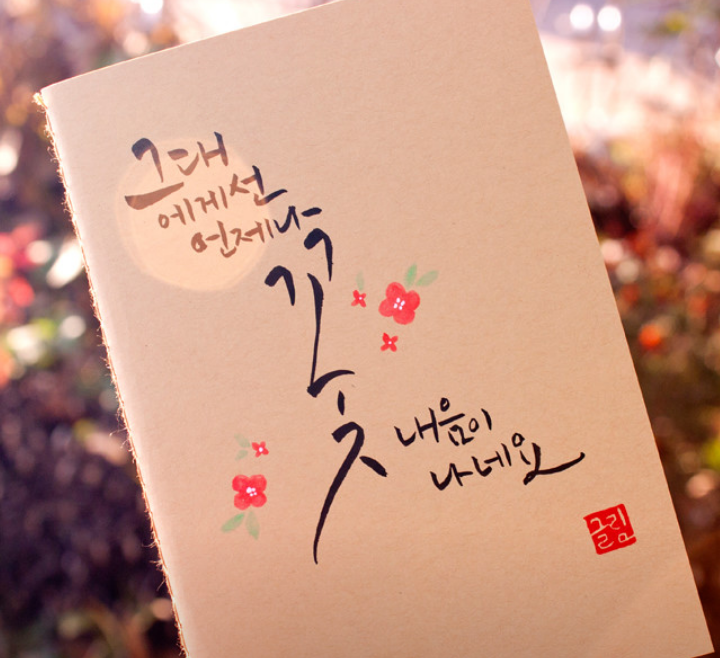 그대
에게선
언제나
꽃
내음이
나네요
글림